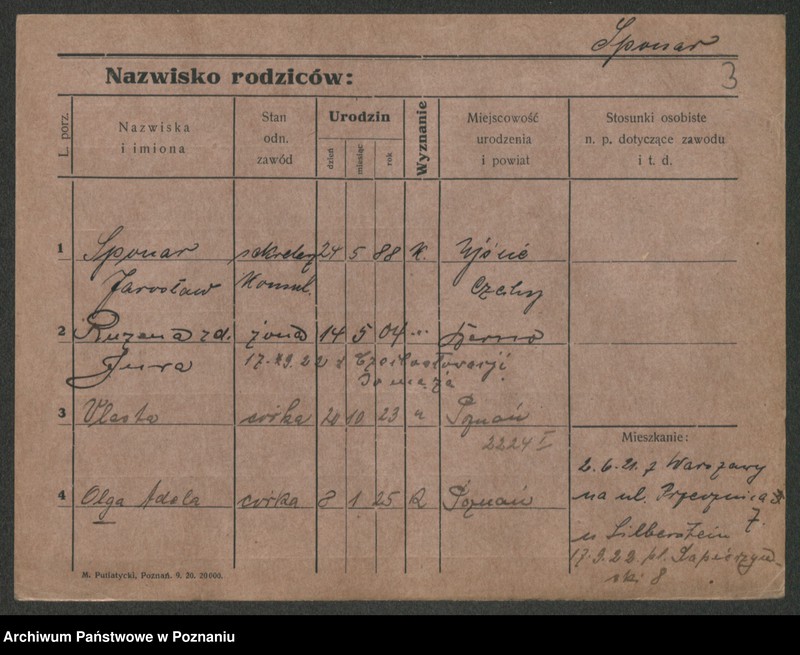 Sponar
3
Nazwisko rodziców:
L. porz.
Nazwiska
i imiona
Stan
odn.
zawód
Urodzin
dzień
miesiąc
rok
Wyznanie
Miejscowość
urodzenia
i powiat
Stosunki osobiste
n. p. dotyczące zawodu
i t. d.
1 Sponar 24 5 88 K.
Jarosław Konsul. Czechy
2 Ruzena z d. żona 14 5 04 Berno
Jura
3 Vlasta córka 20 10 23 Poznań
2224 I
Mieszkanie:
2.6.21. z Warszawy
4 Olga Adela córka 8 1 25 Poznań
na ul.
u Silberstein 7.
17.9.22 pl. Sapieżyń-
ski 8
M. Putiatycki, Poznań. 9. 20. 20000.
Archiwum Państwowe w Poznaniu